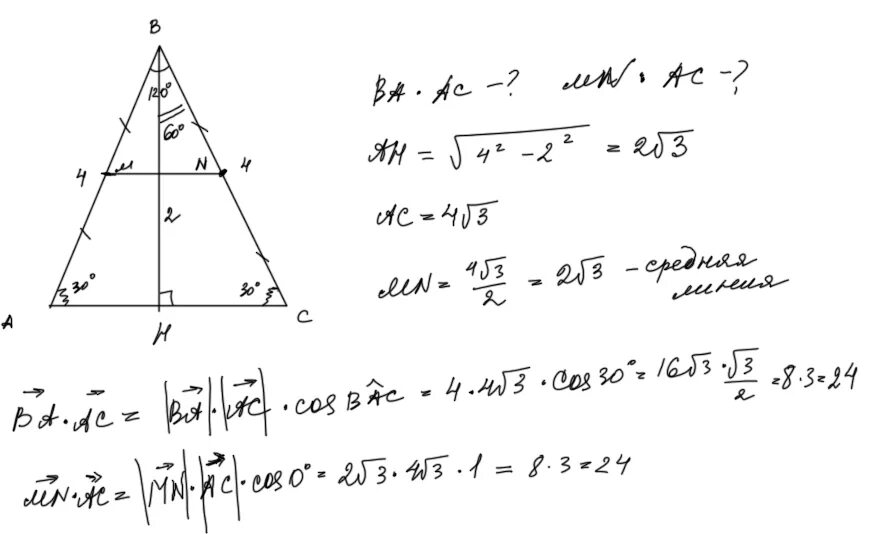 B
120°
60°
4 M N 4
2
30° 30°
A H C
BA · AC - ? MN · AC - ?
AH = √4² - 2² = 2√3
AC = 4√3
MN = 4√3/2 = 2√3 - средняя
линия
BA · AC = |BA| · |AC| · cos BÂC = 4 · 4√3 · cos 30° = 16√3 · √3/2 = 8 · 3 = 24
MN · AC = |MN| · |AC| · cos 0° = 2√3 · 4√3 · 1 = 8 · 3 = 24